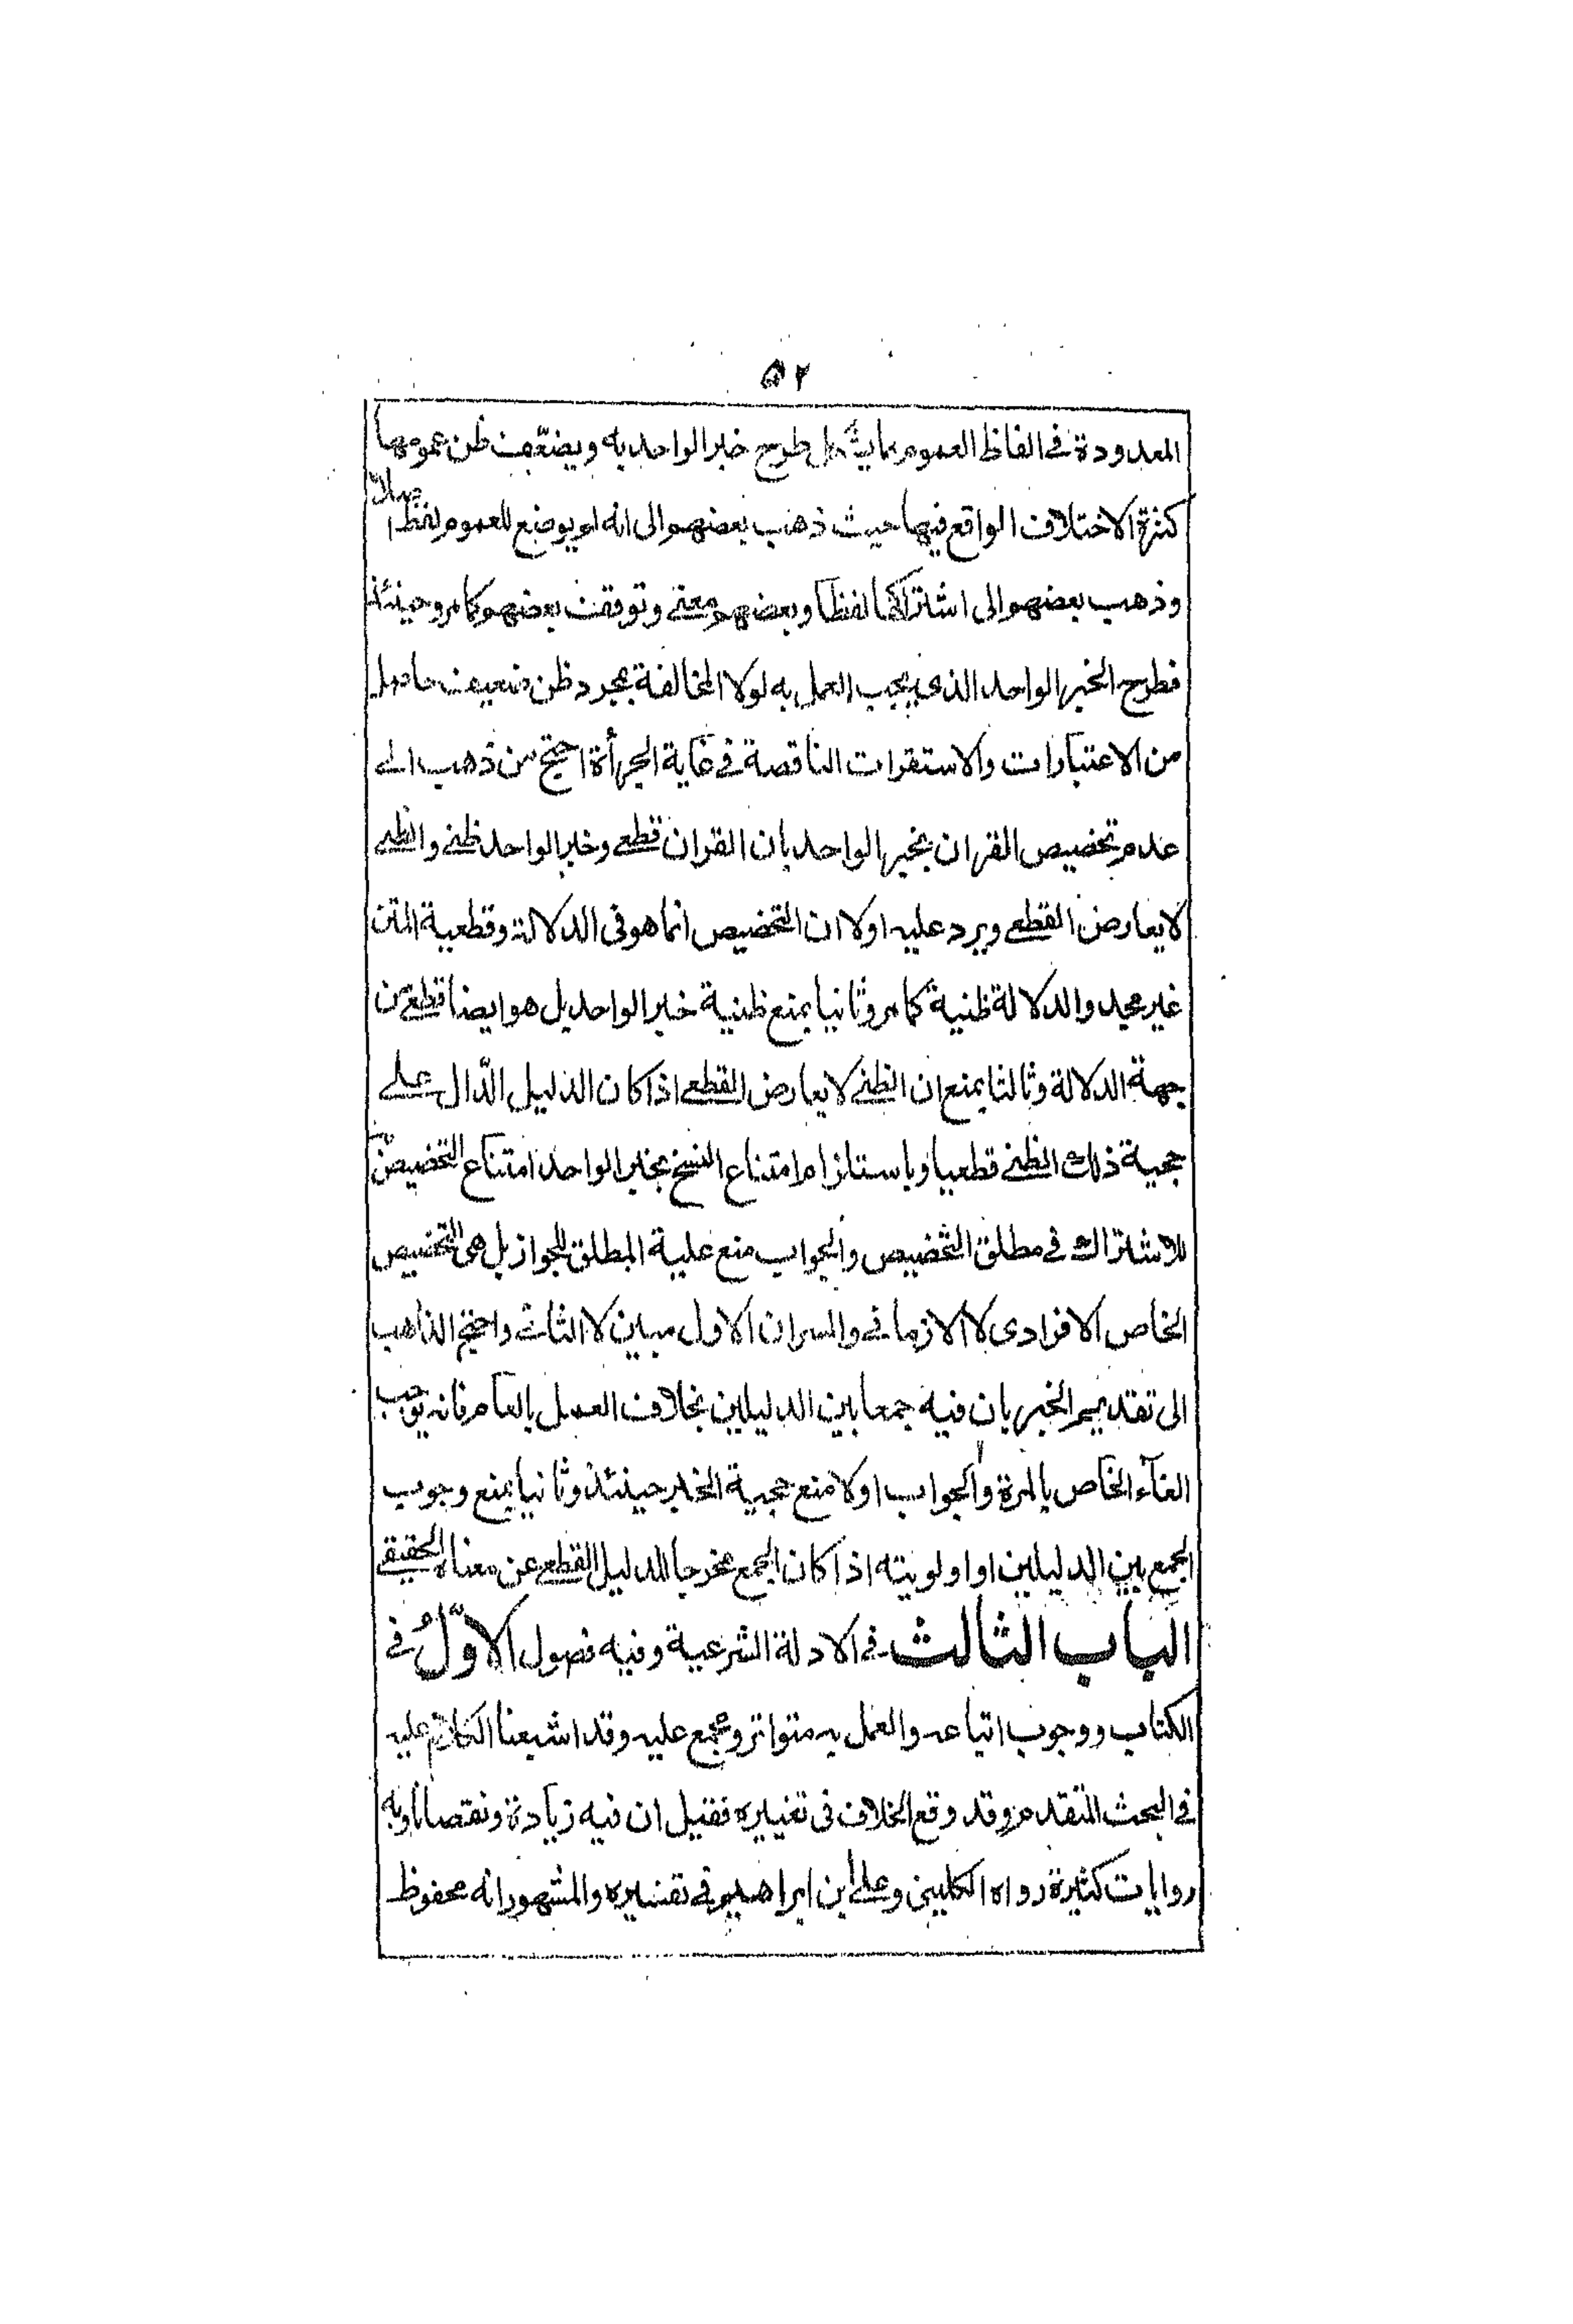 ٥٢
المعدودة في الفاظ العموم مما يشكل طرح خبر الواحد به ويضعّف ظن عمومها
كثرة الاختلاف الواقع فيها حيث ذهب بعضهم الى انه لم يوضع للعموم لفظ اصلا
وذهب بعضهم الى اشتراكها لفظا وبعضهم معنى وتوقف بعضهم كما مر وحينئذ
فطرح الخبر الواحد الذي يجب العمل به لولا المخالفة بمجرد ظن ضعيف حاصل
من الاعتبارات والاستقرات الناقصة في غاية الجرأة احتج من ذهب الى
عدم تخصيص القران بخبر الواحد بان القران قطعي وخبر الواحد ظني والظني
لا يعارض القطعي ويرد عليه اولا ان التخصيص انما هو في الدلالة وقطعية المتن
غير مجد والدلالة ظنية كما مر وثانيا بمنع ظنية خبر الواحد بل هو ايضا قطعي من
جهة الدلالة وثالثا بمنع ان الظني لا يعارض القطعي اذا كان الدليل الدّال على
حجية ذلك الظني قطعيا وباستلزام امتناع النسخ بخبر الواحد امتناع التخصيص به
للاشتراك في مطلق التخصيص والجواب منع علية المطلق للجواز بل هي التخصيص
الخاص الافرادى لا الازماني والسر ان الاول مبين لا الثاني واحتج الذاهب
الى تقديم الخبر بان فيه جمعا بين الدليلين بخلاف العمل بالعام فانه يوجب
الغآء الخاص بالمرة والجواب اولا منع حجية الخبر حينئذ وثانيا بمنع وجوب
الجمع بين الدليلين او اولويته اذا كان الجمع مخرجا للدليل القطعي عن معناه الحقيقي
الباب الثالث في الادلة الشرعية وفيه فصول الاوّلُ في
الكتاب ووجوب اتباعه والعمل به متواتر ومجمع عليه وقد اشبعنا الكلام عليه
في البحث المتقدم وقد وقع الخلاف في تغييره فقيل ان فيه زيادة ونقصانا وبه
روايات كثيرة رواه الكليني وعلي ابن ابراهيم في تفسيره والمشهور انه محفوظ